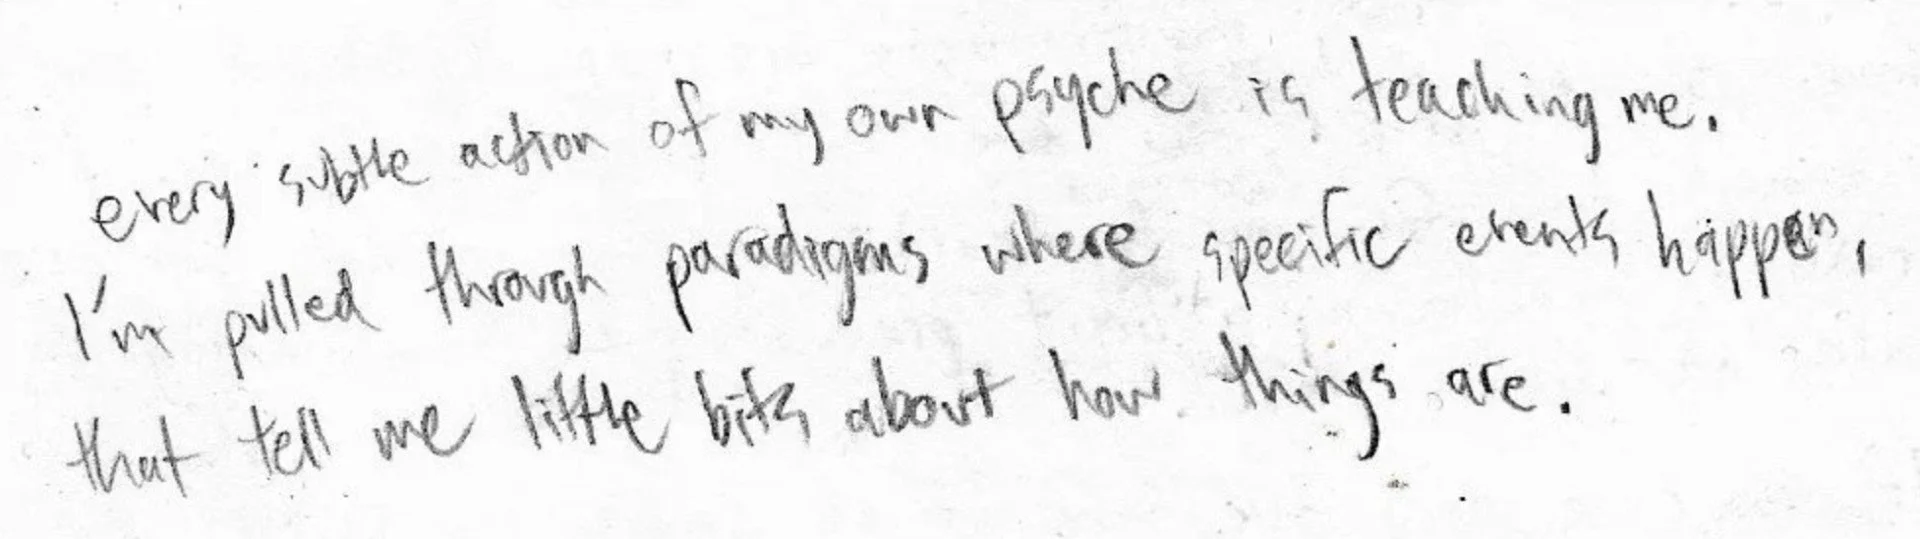 every subtle action of my own psyche is teaching me.
I'm pulled through paradigms where specific events happen,
that tell me little bits about how things are.